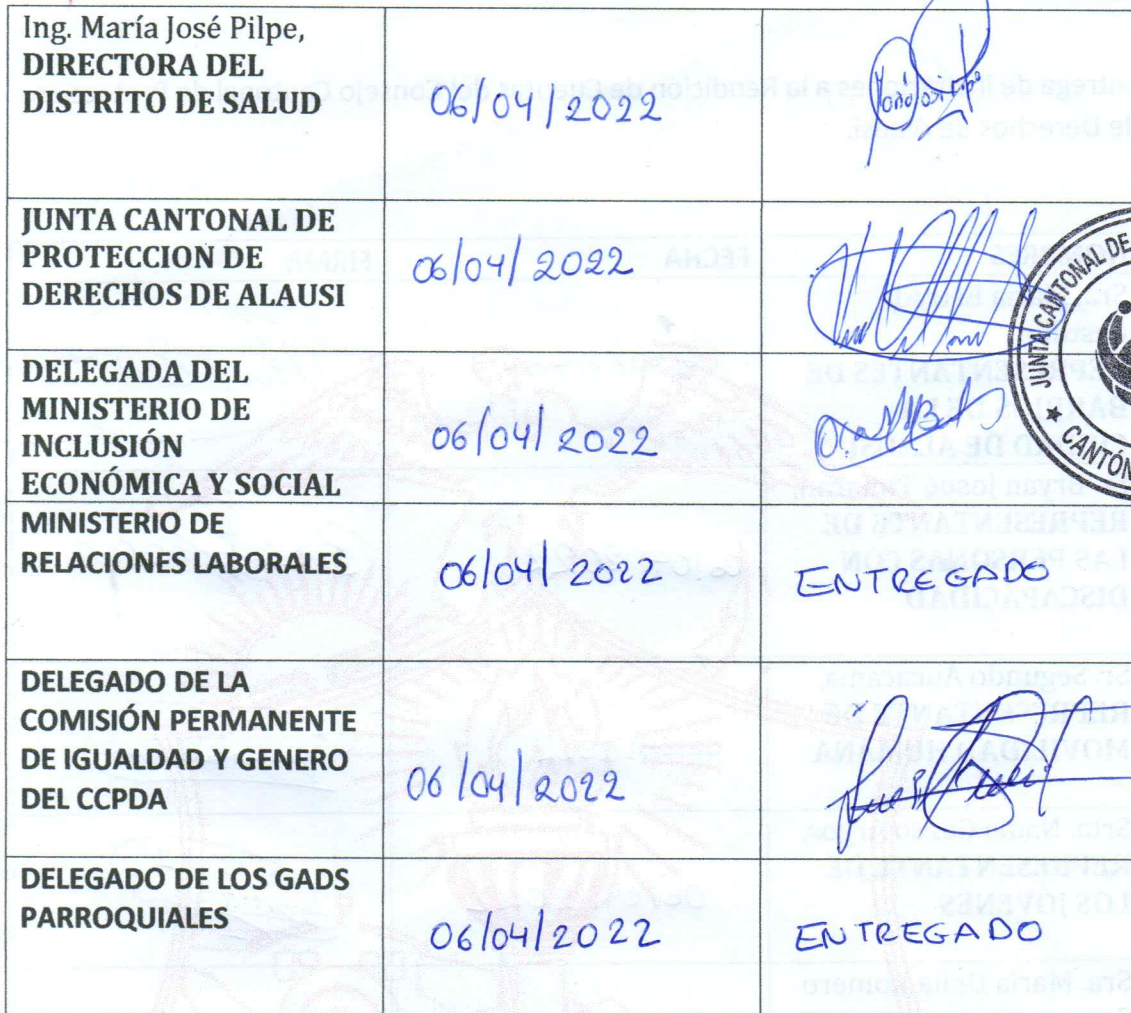 Ing. María José Pilpe,
DIRECTORA DEL
DISTRITO DE SALUD
06/04/2022
JUNTA CANTONAL DE
PROTECCION DE
DERECHOS DE ALAUSI
06/04/2022
JUNTA CANTONAL DE
CANTÓN
DELEGADA DEL
MINISTERIO DE
INCLUSIÓN
ECONÓMICA Y SOCIAL
06/04/2022
MINISTERIO DE
RELACIONES LABORALES
06/04/2022
ENTREGADO
DELEGADO DE LA
COMISIÓN PERMANENTE
DE IGUALDAD Y GENERO
DEL CCPDA
06/04/2022
DELEGADO DE LOS GADS
PARROQUIALES
06/04/2022
ENTREGADO